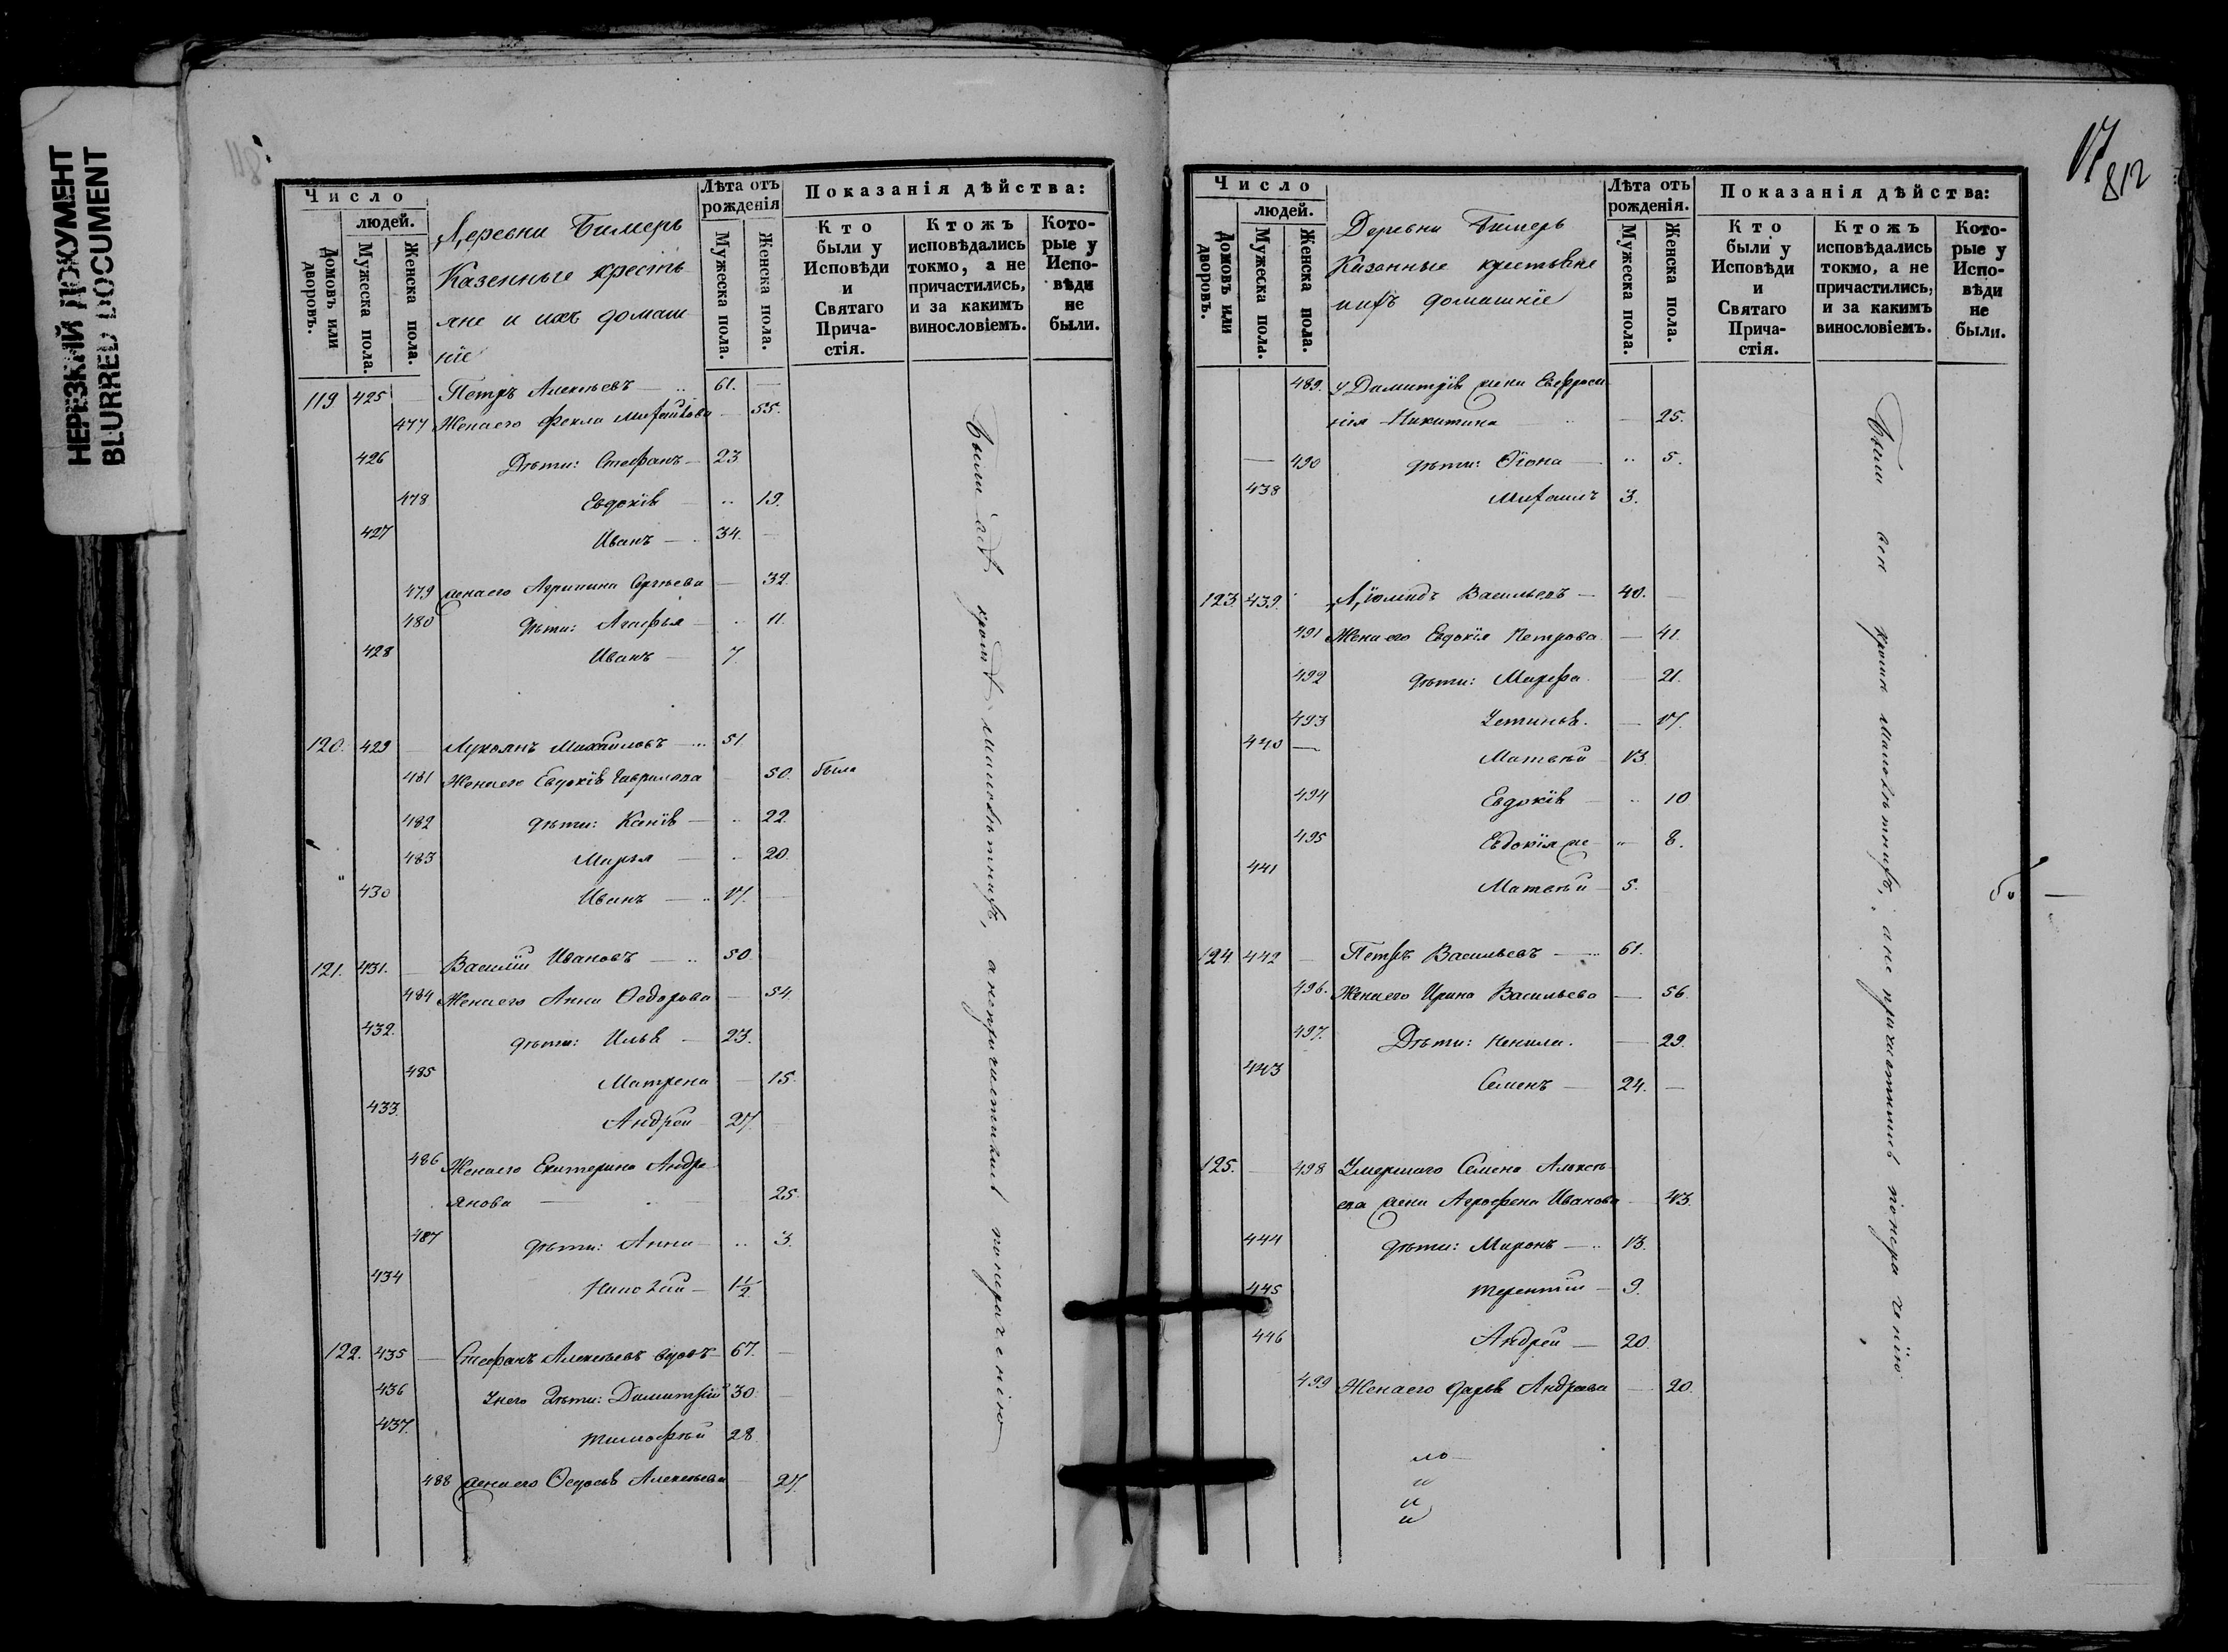 НЕРЕЗКИЙ ДОКУМЕНТ
BLURRED DOCUMENT
Число
людей.
Домовъ или дворовъ.
Мужеска пола.
Женска пола.
Деревни Бимерь
Казенные кресть
яне и ихъ домаш
ніе
Лѣта отъ рожденія
Мужеска пола.
Женска пола.
Показанія дѣйства:
Кто были у Исповѣди и Святаго Прича-стія.
Ктожъ исповѣдались токмо, а не причастились, и за какимъ винословіемъ.
Кото-рые у Испо-вѣди не были.
119 425 — Петръ Алексѣевъ — 61. —
477 Жена его Фекла Михаилова — 55.
426 Дѣти: Стефанъ — 23
478 Евдокія — 19.
427 Иванъ — 34. —
479 жена его Агрипина Сергѣева — 32.
480 дѣти: Агафья — 11.
428 Иванъ — 7.
120. 429 — Лукоянъ Михаиловъ — 51.
481 Жена его Евдокія Гаврилова — 50. была
482 дѣти: Ксенія — 22.
483 Марья — 20.
430 Иванъ — 17. —
121. 431. — Василіи Ивановъ — 50
484 Жена его Анна Ѳедорова — 54.
432. дѣти: Илья — 23.
485 Матрена — 15.
433. Андреи 27. —
486 Жена его Екатерина Андре
янова — 25.
487 дѣти: Анна — 3.
434 1 1/2
122. 435 — Стефанъ Алексѣевъ вдовъ — 67. —
436 У него дѣти: Димитріи 30. —
437. Тимофѣи 28.
488 жена его Ѳедосья Алексѣева — 27.
Были всѣ кромѣ малолѣтнихъ, а непричистились понерачению
812
Число
людей.
Домовъ или дворовъ.
Мужеска пола.
Женска пола.
Деревни Бимерь
Казонные крестьяне
ихъ домашніе
Лѣта отъ рожденія.
Мужеска пола.
Женска пола.
Показанія дѣйства:
Кто были у Исповѣди и Святаго Прича-стія.
Ктожъ исповѣдались токмо, а не причастились, и за какимъ винословіемъ.
Кото-рые у Испо-вѣди не были.
489. у Димитрія жена Евфроси
нія Никитина — 25.
— 490 дѣти: — 5.
438 Михаилъ 3.
123. 439. Діомидъ Васильевъ — 40. —
491 Жена его Евдокія Петрова — 41.
492 дѣти: Марфа — 21.
493 Устинья. — 17.
440 — Матвѣи 13.
494 Евдокія — 10
495 Евдокія же — 8.
441 Матвѣи — 5.
124. 442 — Петръ Васильевъ — 61.
496. Жена его Ирина Васильева — 56.
497. Дѣти: Ненила. — 29.
443 Семенъ — 24. —
125. — 498 Умершаго Семена Алексѣ
ева жена Агрофена Иванова — 43.
444 дѣти: Миронъ — 13.
445 Терентіи — 9.
446 Андреи — 20.
499 Жена его Дарья Андреева — 20.
Были всѣ кромѣ малолѣтнихъ, а не причистились